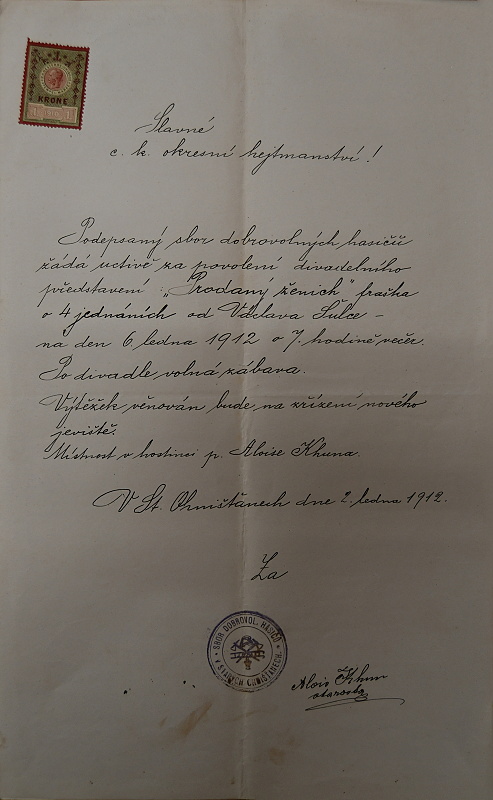 KRONE
Slavné
c. k. okresní hejtmanství!
Podepsaný sbor dobrovolných hasičů
žádá uctivě za povolení divadelního
představení: „Prodaný ženich" fraška
o 4 jednáních od Václava Šulce –
na den 6 ledna 1912 o 7. hodině večer.
Po divadle volná zábava.
Výtěžek věnován bude na zřízení nového
jeviště.
Místnost v hostinci p. Aloise Khuna.
V St. Ohništanech dne 2. ledna 1912.
Za
SBOR DOBROVOL. HASIČŮ
V STARÝCH OHNIŠŤANECH
Alois Khun